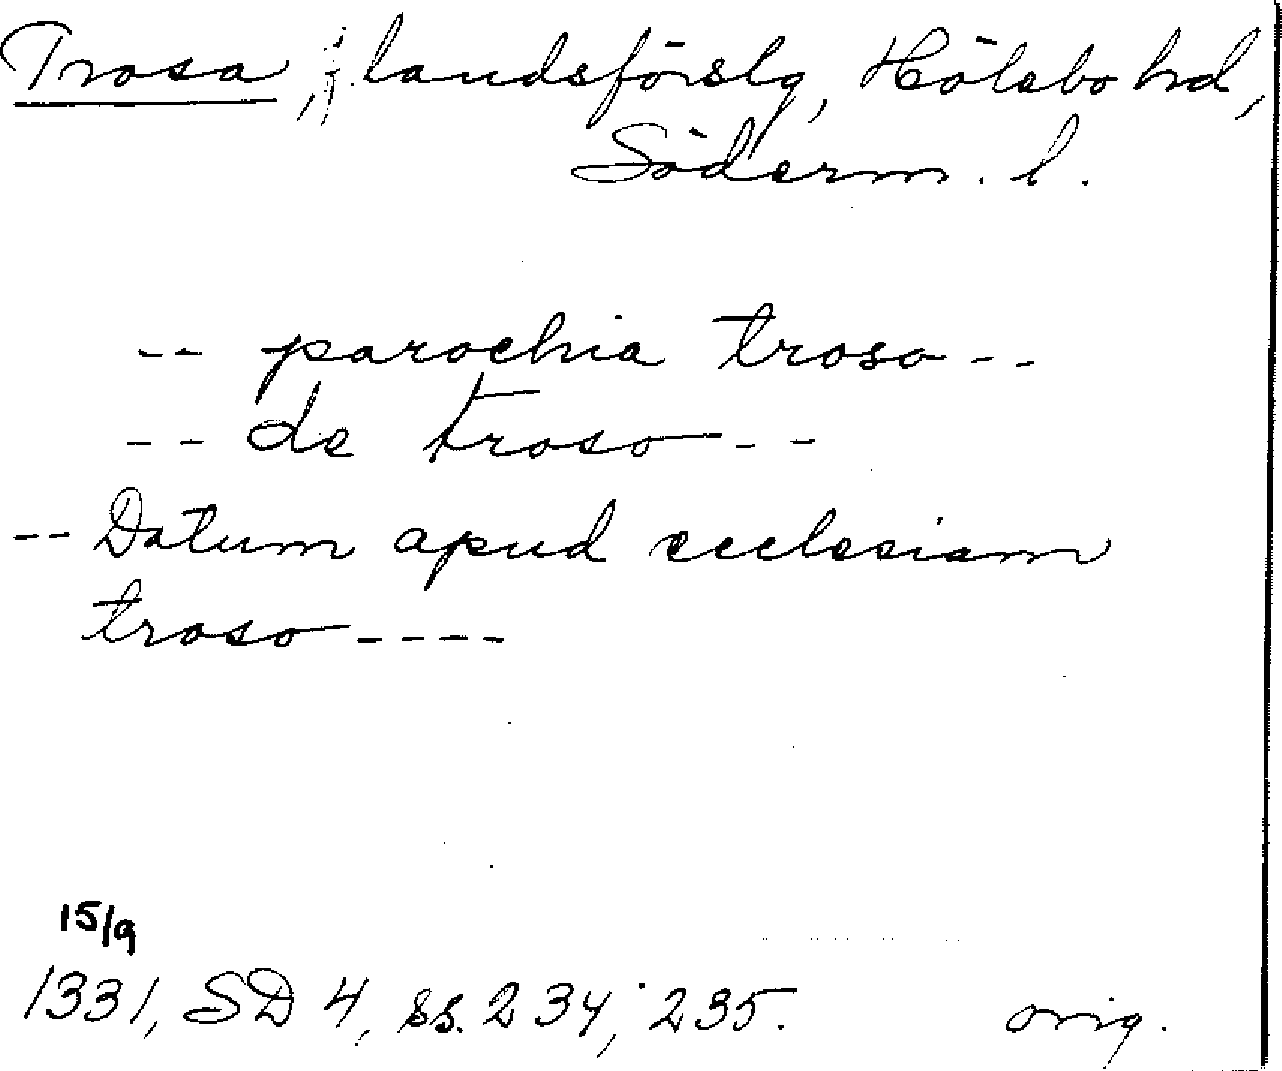 Trosa, landsförslg, Hölebo hd,
Söderm. l.
-- parochia troso --
-- de troso --
-- Datum apud ecclesiam
troso ----
15/9
1331, SD 4, ss. 234, 235. orig.